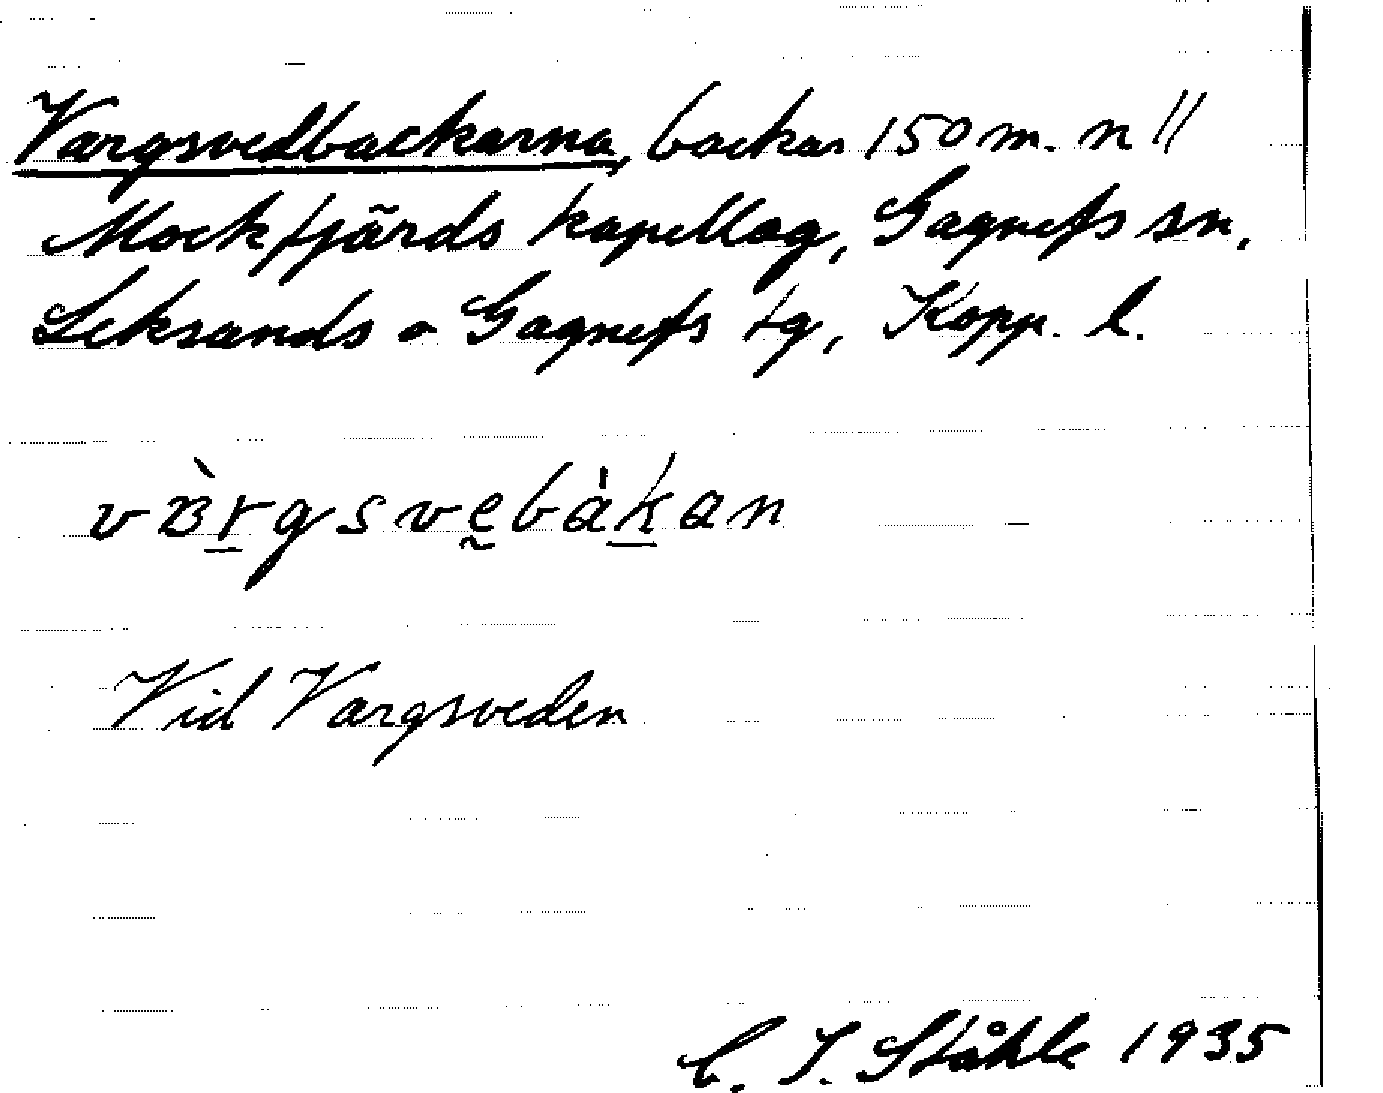 Vargsvedbackarna, backar 150 m. n //
Mockfjärds kapellag, Gagnefs sn,
Leksands o Gagnefs tg, Kopp. l.
vàrgsvebàkan
Vid Vargsveden
C. I. Ståhle 1935